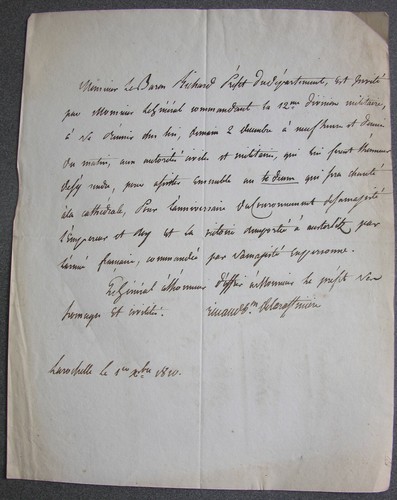 Monsieur Le Baron Richard Préfet du département, est Invité
par Monsieur le Général commandant la 12me division militaire,
à se réunir chez lui, demain 2 decembre à neuf heures et demie
du matin, aux autorités civile et militaire, qui lui feront l'honneur
de s'y rendre, pour assister Ensemble au te deum qui sera chanté
à la cathédrale, Pour l'anniversaire du Couronnement de sa majesté
l'Empereur et Roy et la victoire remportée à austerlitz par
l'armée française, commandée par sa majesté En personne.
Le Général a l'honneur d'offrir à Monsieur le préfet ses
hommages et civilités.
Larochelle le 1er Xbre 1810.